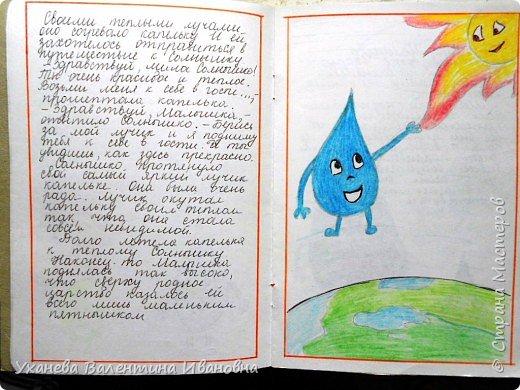 Своими теплыми лучами
оно согревало капельку. И ей
захотелось отправиться в
путешествие к Солнышку.
- Здравствуй мило Солнышко!
Ты очень красивое и теплое.
Возьми меня к себе в гости...,-
прошептала капелька.
- Здравствуй, Малышка,-
ответило Солнышко. - Берись
за мой лучик и я подниму
тебя к себе в гости. и ты
увидишь, как здесь прекрасно.
Солнышко протянуло
свой самый яркий лучик
капельке. Она была очень
рада. Лучик окутал
капельку своим теплом
так, что она стала
совсем невидимой.
Долго летела капелька
к теплому Солнышку
Наконец-то Малышка
поднялась так высоко,
что сверху родное
царство казалось ей
всего лишь маленьким
пятнышком
Уханева Валентина Ивановна
© Страна Мастеров